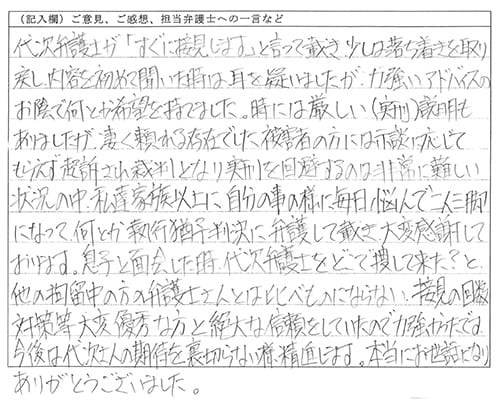 (記入欄) ご意見、ご感想、担当弁護士への一言など
代次弁護士が「すぐに接見します。」と言って戴き 少しは落ち着きを取り
戻し、内容を初めて聞いた時は耳を疑いましたが、力強いアドバイスの
お陰で何とか希望を持てました。時には厳しい(実刑)説明も
ありましたが、凄く頼れる存在でした。被害者の方には示談に応じて
もらえず起訴され裁判となり実刑を回避するのは非常に難しい
状況の中、私達家族以上に自分の事の様に毎日悩んで二人三脚
になって、何とか執行猶予判決に弁護して戴き、大変感謝して
おります。息子と面会した時、代次弁護士をどこで捜して来た?と、
他の拘留中の方の弁護士さんとはくらべものにならない、接見の回数
対策等大変優秀な方と絶大な信頼をしていたので力強かったです。
今後は代次さんの期待を裏切らない様、精進します。本当にお世話になり
ありがとうございました。